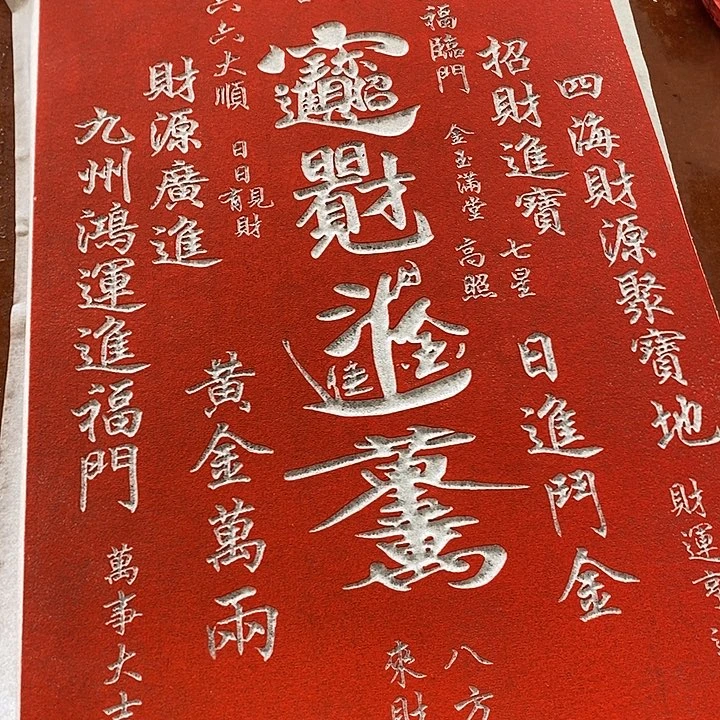 財運亨
四海財源聚寶地
招財進寶
七星
高照
日進鬥金
福臨門
金玉滿堂
八方
來財
六大順
日日
見有
財
財源廣進
黃金萬兩
九州鴻運進福門
萬事大吉